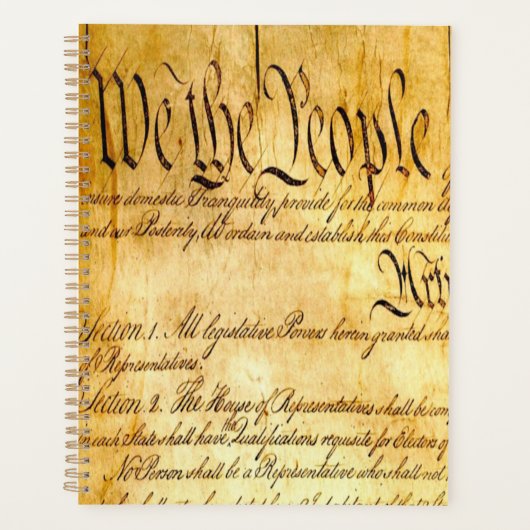 We the People
nsure domestic Tranquility, provide for the common
and our Posterity, do ordain and establish this Constitu
Arti
Section. 1. All legislative Powers herein granted sha
of Representatives.
Section. 2. The House of Representatives shall be com
in each State shall have the Qualifications requisite for Electors of
No Person shall be a Representative who shall not